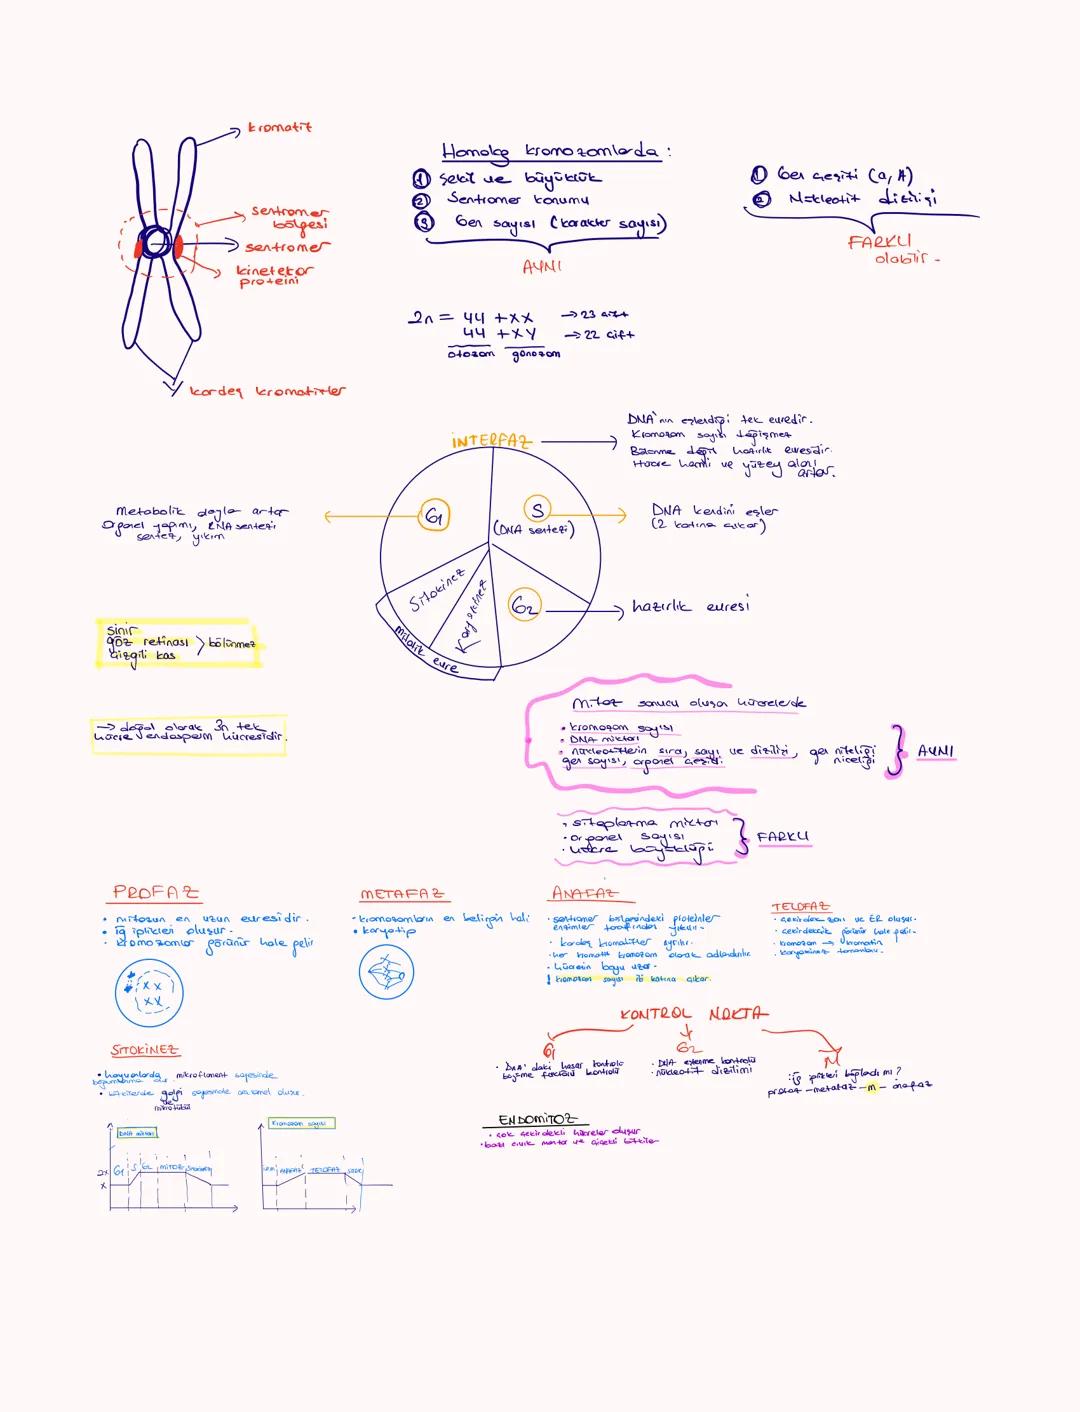 kromatit
sentromer
bölgesi
sentromer
kinetekor
proteini
kardeş kromatitler
Homolog kromozomlarda :
① Şekil ve büyüklük
② Sentromer konumu
③ Gen sayısı (karakter sayısı)
AYNI
① Gen çeşiti (a, A)
② Nükleotit dizilişi
FARKLI
olabilir -
2n = 44 + XX → 23 çift
44 + XY → 22 çift
otozom gonozom
İNTERFAZ
DNA'nın eşlendiği tek evredir.
Kromozom sayısı değişmez
Bölünme değil hazırlık evresidir.
Hücre hacmi ve yüzey alanı
artar.
Metabolik olaylar artar
Organel yapımı, RNA sentezi
sentez, yıkım
G1
S
(DNA sentezi)
DNA kendini eşler
(2 katına çıkar)
Sitokinez
Karyokinez
G2
hazırlık evresi
mitotik evre
sinir
göz retinası > bölünmez
çizgili kas
→ doğal olarak 3n tek
hücre endosperm hücresidir.
Mitoz sonucu oluşan hücrelerde
• kromozom sayısı
• DNA miktarı
• nükleotitlerin sıra, sayı ve dizilişi, gen niteliği
niceliği
gen sayısı, organel çeşidi
AYNI
• sitoplazma miktarı
• organel sayısı
• hücre büyüklüğü
FARKLI
PROFAZ
• mitozun en uzun evresidir.
• İğ iplikleri oluşur.
• kromozomlar görünür hale gelir
METAFAZ
• kromozomların en belirgin hali
• karyotip
ANAFAZ
• sentromer bölgesindeki proteinler
enzimler tarafından yıkılır.
• kardeş kromatitler ayrılır.
• her kromatit kromozom olarak adlandırılır
• hücrenin boyu uzar.
! kromozom sayısı iki katına çıkar.
TELOFAZ
• çekirdek zarı ve ER oluşur.
• çekirdekcik görünür hale gelir.
• kromozom → kromatin
• karyokinez tamamlanır.
KONTROL NOKTA
G1
• DNA'daki hasar kontrolü
büyüme faktörü kontrolü
G2
• DNA eşlenme kontrolü
• nükleotit dizilimi
M
: iğ iplikleri bağlandı mı?
profaz - metafaz - m - anafaz
SİTOKİNEZ
• hayvanlarda mikroflament sayesinde
boğumlanma
• bitkilerde golgi sayesinde ara lamel oluşur.
ve
mikrotübül
ENDOMİTOZ
• çok çekirdekli hücreler oluşur
• bazı cıvık mantar ve çiçekli bitkiler
DNA miktarı
2x
x
G1 S G2 MİTOZ Sitokinez
Kromozom sayısı
ANAFAZ TELOFAZ